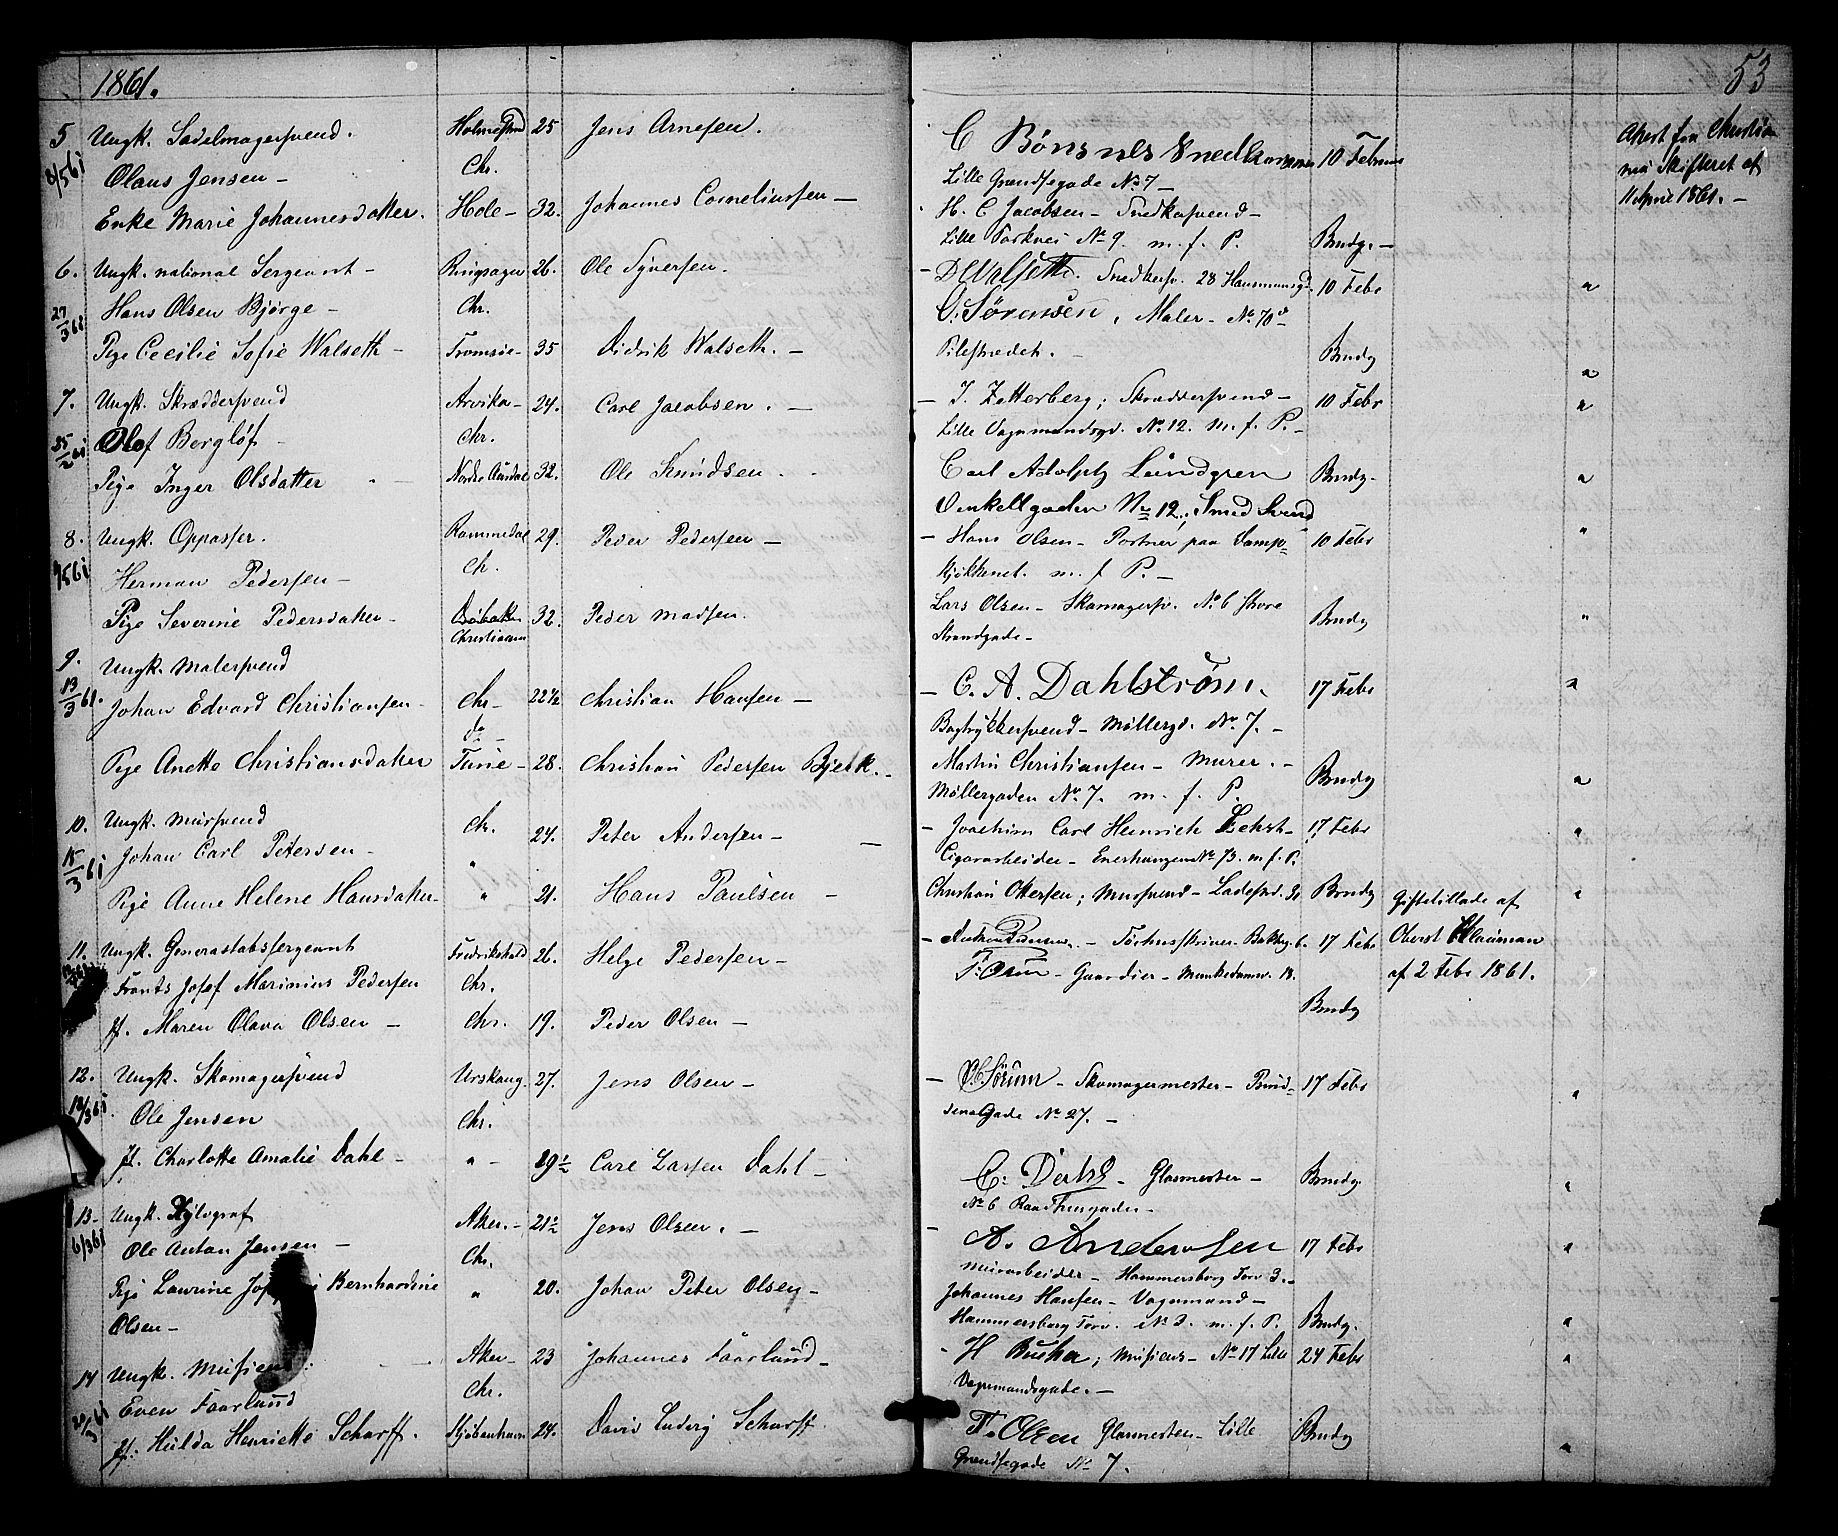 1861.
53
5 Ungk. Sadelmagersvend. Holmestrand 25 Jens Arnesen. C Bønsnes Snedker 10 Februar Attest fra Christia
8/5 61 Olaus Jensen – Chr. Lille Grændsegade No 7 – nia Skifteret af
Enke Marie Johannesdatter. Hole – 32. Johannes Corneliussen – H. C. Jacobsen – Snedkersvend – 11 April 1861. –
Lille Torvkei No 9. m. f. P. Brudg. –
6. Ungk. national Sergeant – Ringsager 26. Ole Syversen. – D Walseth. Snedkersv. 28 Hausmannsgd. 10 Febr "
27/3 61 Hans Olsen Bjørge – Chr. O. Sørensen, Maler – No 70
Pige Cecilie Sofie Walseth – Tromsøe – 35 Didrik Walseth. – Pilestrædet. – Brudg "
7. Ungk. Skræddersvend Arvika – 24. Carl Jacobsen. – – J. Zetterberg; Skræddersvend – 10 Febr "
25/2 61 Olof Bergløf – Chr. Lille Vognmandsgd. No 12. m. f. P. –
Pige Inger Olsdatter Nordre Aurdal 32. Ole Knudsen. Carl Adolph Lundgren Brudg. "
Vinkelgaden No 12; Smed Svend
8. Ungk. Oppasser. Rommedal 29. Peder Pedersen – – Hans Olsen – Portner paa Damp= 10 Febr "
/5 61 Herman Pedersen – Ch. kjøkkenet. m. f P. –
Pige Severine Pedersdatter – Christiania 32. Peder Madsen. Lars Olsen – Skomagersv. No 6 Store Brudg "
Strandgade –
9. Ungk. Malersvend
13/3 61. Johan Edvard Christiansen – Chr – 22½ Christian Hansen – – C. A. Dahlström. 17 Febr "
do – Bogtrykkersvend – Møllergd. No 7. –
Pige Anette Christiansdatter Tune – 28. Christian Pedersen Bjerk. – Martin Christiansen – Murer. – Brudg "
Møllergaden No 7. m. f. P.
10. Ungk. Mursvend Chr. 24. Peter Andersen – – Joachim Carl Heinrich Echst – 17 Febr "
15/3 61 Johan Carl Petersen – " Cigararbeider – Enerhaugen No 73. m. f. P.
Pige Anne Helene Hansdatter – " 21. Hans Paulsen – Christian Ottersen; Mursvend – Brudg Giftetillade af "
11. Ungk. Generalstabssergeant Fredrikshald 26. Helge Pedersen – – Tugthusskriver – Bakkeg. 6. 17 Febr Oberst Hauman
Frants Josef Marinius Pedersen Chr. T: Olsen – Gaardier – Munkedamsv. 18. af 2 Febr 1861.
Jf. Maren Olava Olsen – Chr. 19. Peder Olsen – Brudg
12. Ungk. Skomagersvend Urskoug. 27. Jens Olsen – – Sørum – Skomagermester – Rosd= 17 Febr "
18/3 61. Ole Jensen Chr. Gade No 27. –
Jf. Charlotte Amalie Dahl – " – 29½ Carl Larsen Dahl – C: Dahl – Glasmester – Brudg. "
No 6 Raadhusgaden –
13 – Ungk. Xylograf Aker. – 21½ Jens Olsen. – – A. Andersen 17 Febr "
6/3 61 Ole Anton Jensen – Chr. Murarbeider – Hammersborg Torv 3. –
Pige Laurine Bernhardine " 20. Johan Peter Olsen – Johannes Hansen – Vognmand –
Olsen – Hammersborg Torv. No 3. m. f. P. Brudg. "
14 Ungk. Musicus Aker – 23 Johannes Faarlund – – H Busha; Musicus – No 17 Lille 24 Febr "
20/3 61 Even Faarlund Chr. Vognmandsgade. –
Jf. Hulda Henriette Scharff. Kjøbenhavn 24. David Ludvig Scharff F. Olsen Glasmester – Lille Brudg "
Grændsegade No 7.